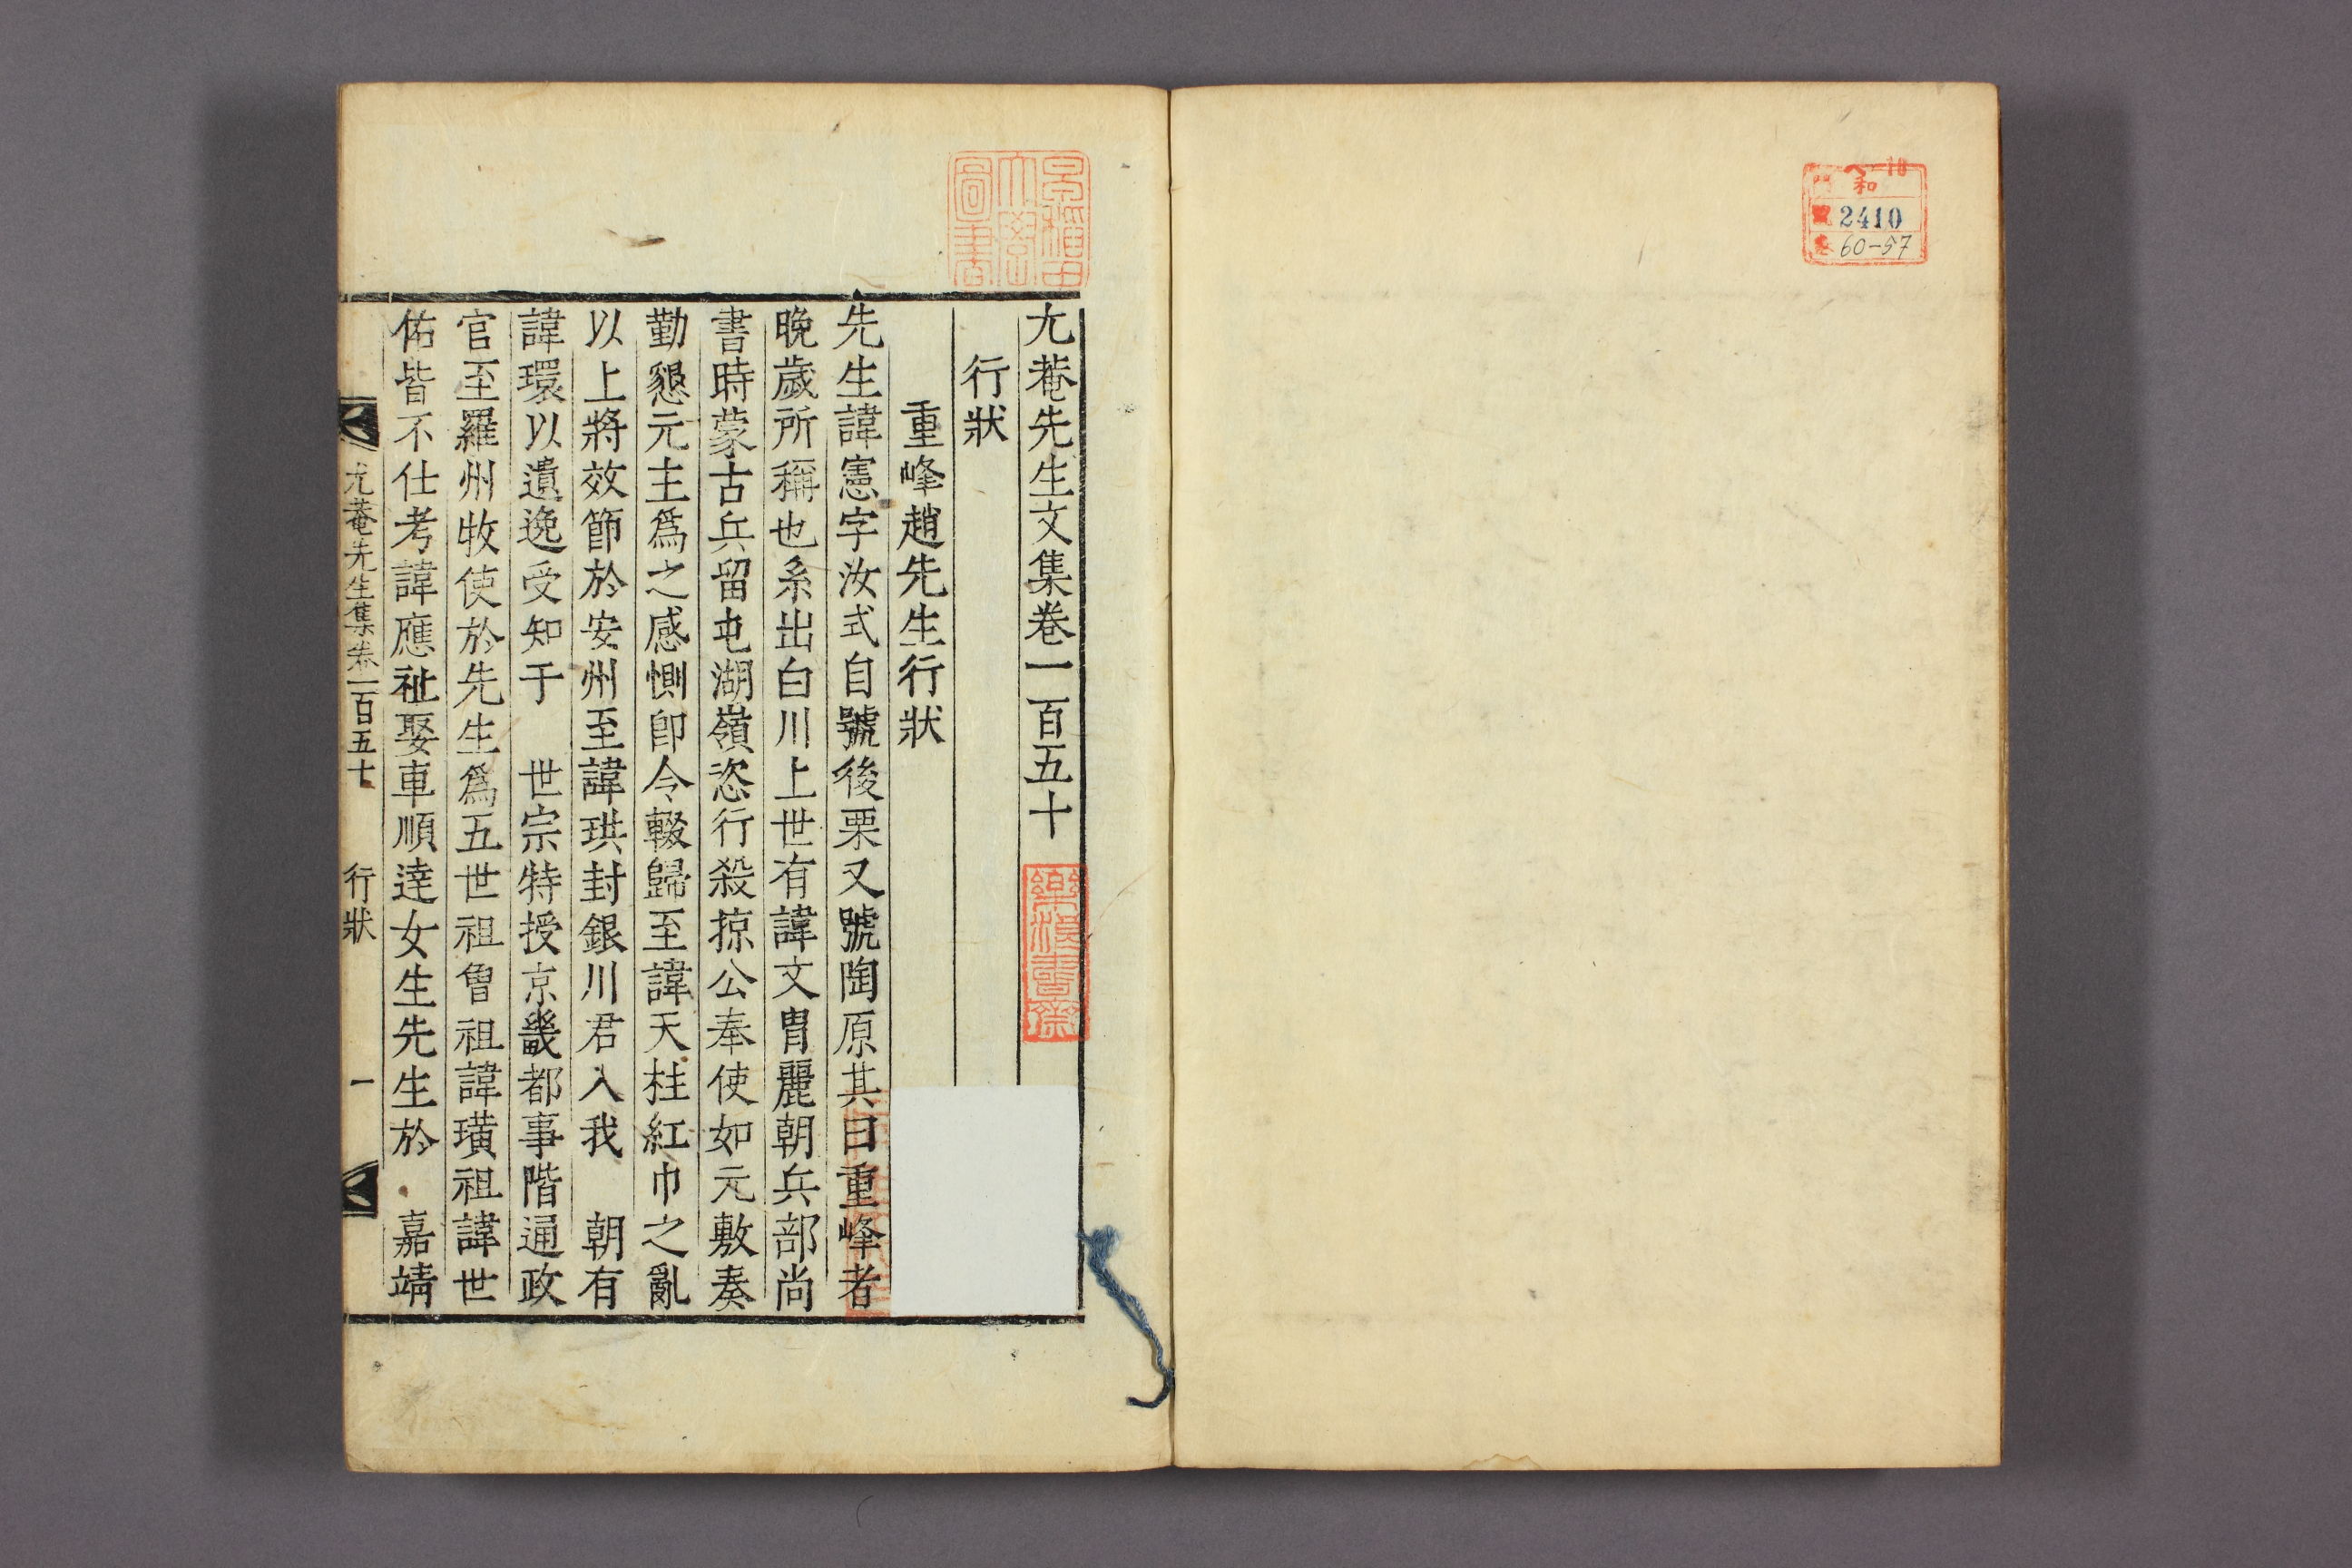 ヘ 10
門 和
號 2410
卷 60-57
早稲田
大學
圖書
尤菴先生文集卷一百五十
行狀
重峰趙先生行狀
先生諱憲字汝式自號後栗又號陶原其曰重峰者
晩歲所稱也系出白川上世有諱文冑麗朝兵部尚
書時蒙古兵留屯湖嶺恣行殺掠公奉使如元敷奏
勤懇元主爲之感惻卽令輟歸至諱天柱紅巾之亂
以上將效節於安州至諱珙封銀川君入我 朝有
諱環以遺逸受知于 世宗特授京畿都事階通政
官至羅州牧使於先生爲五世祖曾祖諱璜祖諱世
佑皆不仕考諱應祉娶車順達女生先生於 嘉靖
尤菴先生集卷一百五十 行狀 一